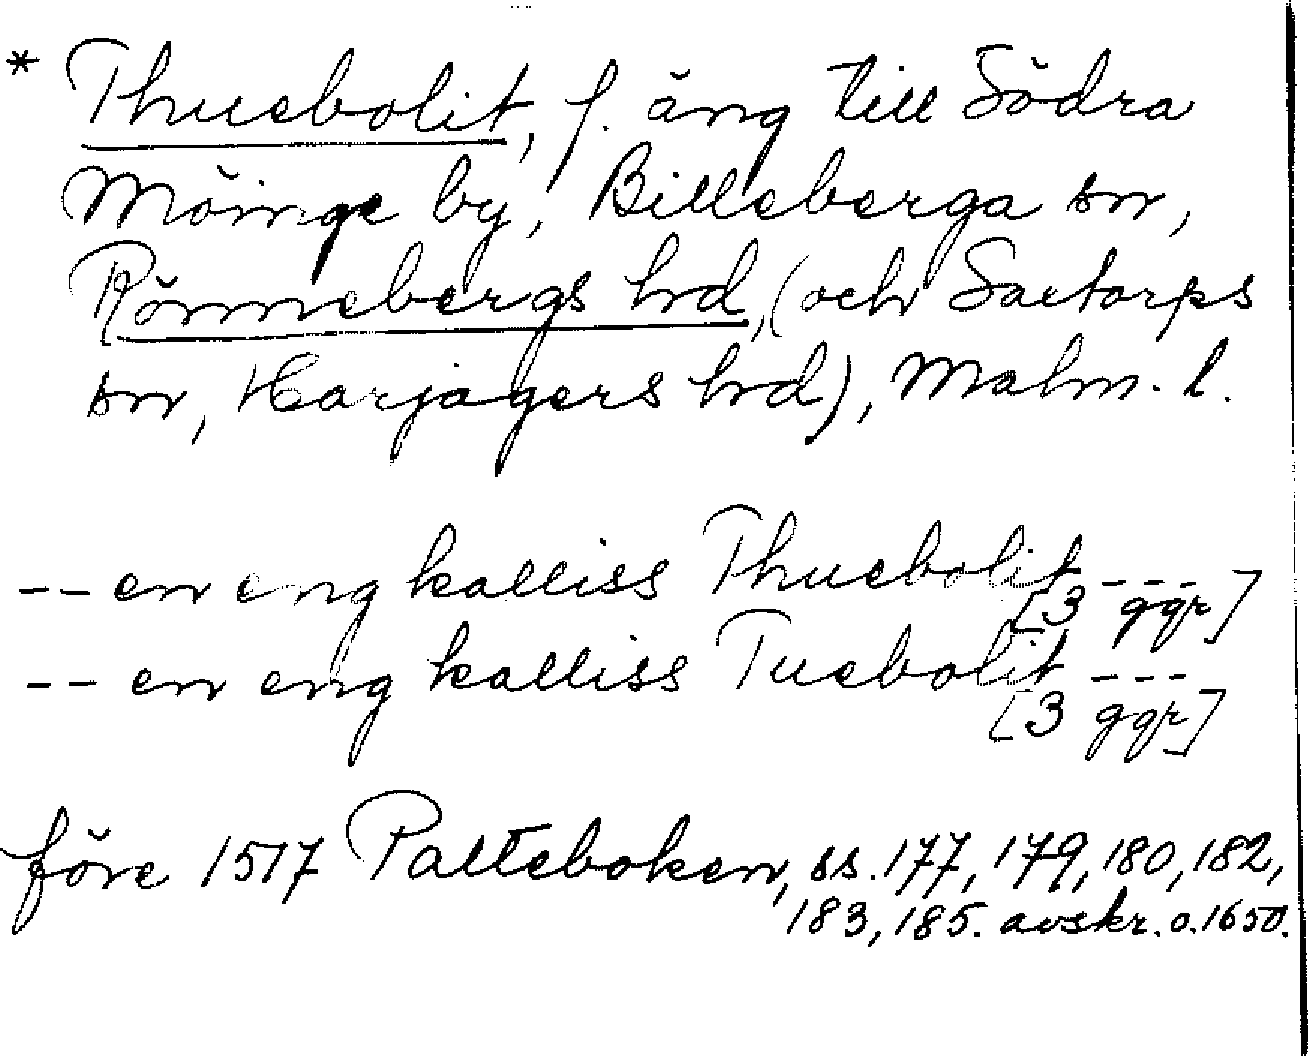 * Thuebolit, f. äng till Södra
Möinge by, Billeberga sn,
Rönnebergs hrd, (och Saxtorps
sn, Harjagers hrd), Malm. l.
-- en eng kalliss Thuebolit ---
[3 ggr]
-- en eng kalliss Tuebolit ---
[3 ggr]
före 1517 Palteboken, ss. 177, 179, 180, 182,
183, 185. avskr. o. 1650.